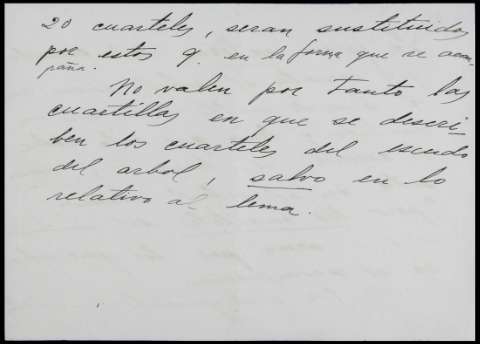 20 cuarteles, seran sustituidos
por estos q. en la forma que se acom,
paña.
No valen por tanto las
cuartillas en que se descri
ben los cuarteles del escudo
del arbol, salvo en lo
relativo al lema.